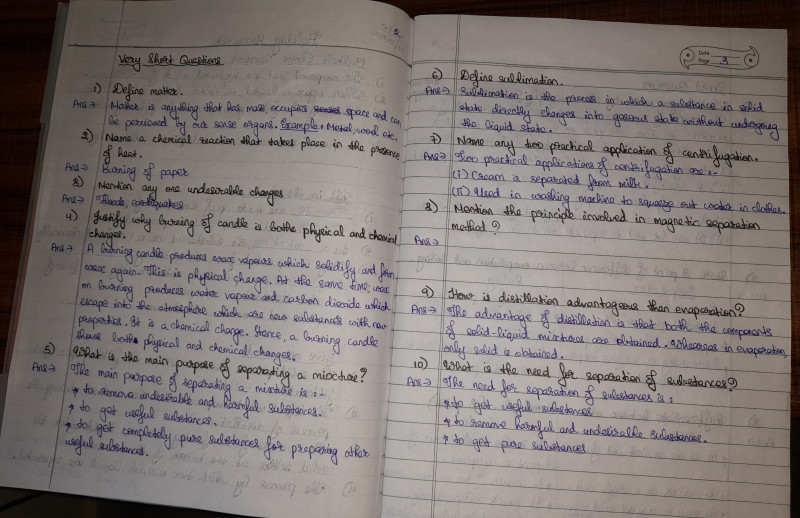 Very Short Questions
1) Define matter.
Ans→ Matter is anything that has mass, occupies space and can
be perceived by our sense organs. Example: Metal, wood etc.
2) Name a chemical reaction that takes place in the presence
of heat.
Ans→ Burning of paper
3) Mention any one undesirable changes
Ans→ Floods, earthquakes
4) Justify why burning of candle is bothe physical and chemical
changes.
Ans→ A burning candle produces wax vapours which solidify and form
wax again. This is physical change. At the same time, wax
on burning produces water vapour and carbon dioxide which
escape into the atmosphere which are new substances with new
properties. It is a chemical change. Hence, a burning candle
shows bothe physical and chemical changes.
5) What is the main purpose of separating a mixture?
Ans→ The main purpose of separating a mixture is :-
→ to remove undesirable and harmful substances.
→ to get useful substances.
→ to get completely pure substances for preparing other
useful substances.
Date
Page 3
6) Define sublimation.
Ans→ Sublimation is the process in which a substance in solid
state directly changes into gaseous state without undergoing
the liquid state.
7) Name any two practical application of centrifugation.
Ans→ Two practical applications of centrifugation are :-
(i) Cream is separated from milk.
(ii) Used in washing machine to squeeze out water in clothes.
8) Mention the principle involved in magnetic separation
method?
Ans→
9) How is distillation advantageous than evaporation?
Ans→ The advantage of distillation is that both the components
of solid-liquid mixtures are obtained. Whereas in evaporation,
only solid is obtained.
10) What is the need for separation of substances?
Ans→ The need for separation of substances is :
→ to get useful substances
→ to remove harmful and undesirable substances.
→ to get pure substances